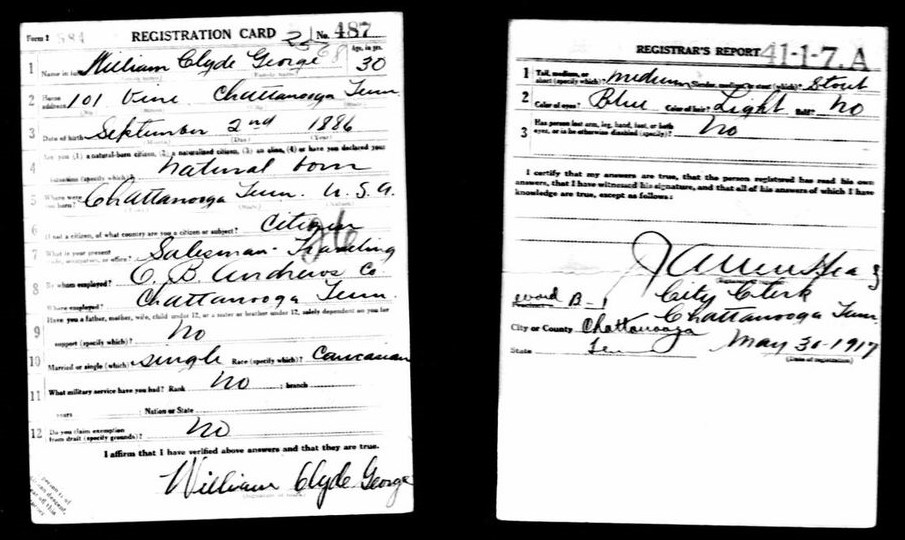 Form 1 584 REGISTRATION CARD No. 487
1 Name in full William Clyde George Age, in yrs. 30
2 Home address 101 Vine Chattanooga Tenn
3 Date of birth September 2nd 1886
Are you (1) a natural-born citizen, (2) a naturalized citizen, (3) an alien, (4) or have you declared your
4 intention (specify which)? Natural born
5 Where were you born? Chattanooga Tenn. U.S.A.
6 If not a citizen, of what country are you a citizen or subject? Citizen
7 What is your present trade, occupation, or office? Salesman - Traveling
8 By whom employed? O. B. Andrews Co
Where employed? Chattanooga Tenn.
Have you a father, mother, wife, child under 12, or a sister or brother under 12, solely dependent on you for
9 support (specify which)? No
10 Married or single (which) single Race (specify which)? Caucasian
11 What military service have you had? Rank No ; branch
years ; Nation or State
12 Do you claim exemption from draft (specify grounds)? No
I affirm that I have verified above answers and that they are true.
William Clyde George
REGISTRAR'S REPORT 41-1-7. A
1 Tall, medium, or short (specify which)? medium Slender, medium, or stout (which)? Stout
2 Color of eyes? Blue Color of hair? Light Bald? No
3 Has person lost arm, leg, hand, foot, or both eyes, or is he otherwise disabled (specify)? No
I certify that my answers are true, that the person registered has read his own
answers, that I have witnessed his signature, and that all of his answers of which I have
knowledge are true, except as follows:
City Clerk
Precinct ward B-1 Chattanooga Tenn.
City or County Chattanooga
State Tenn May 30-1917
(Date of registration)